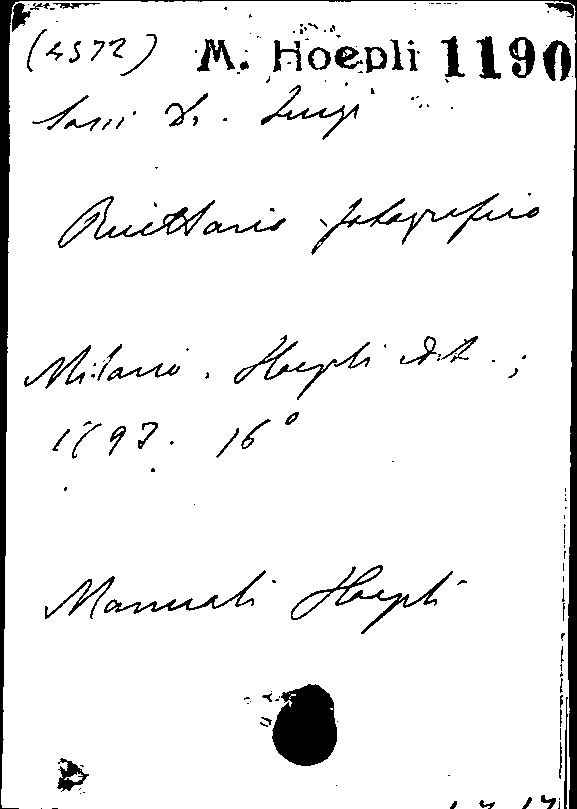 (4572) M. Hoepli 1190
Sassi Dr. Luigi
Ricettario fotografico
Milano. Hoepli edit. ;
1897. 16°
Manuali Hoepli